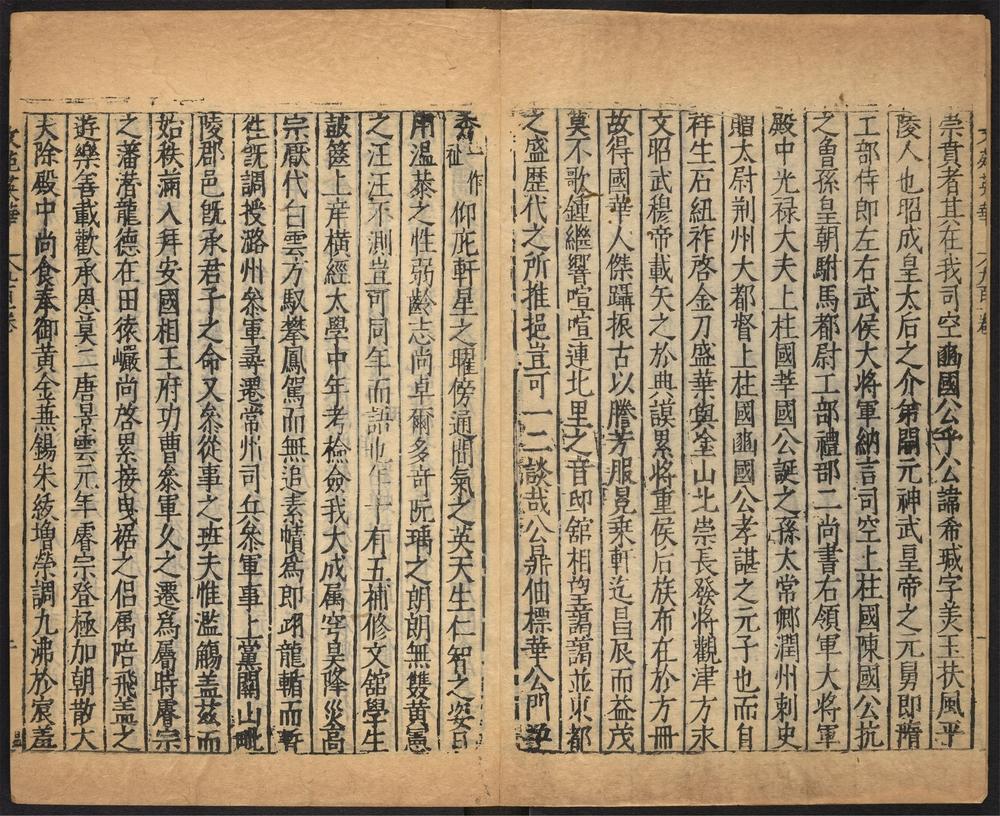 崇貴者其在我司空豳國公乎公諱希瑊字美玉扶風平
陵人也昭成皇太后之介弟開元神武皇帝之元舅即隋
工部侍郎左右武侯大將軍納言司空上柱國陳國公抗
之魯孫皇朝駙馬都尉工部禮部二尚書右領軍大將軍
殿中光禄大夫上柱國莘國公誕之孫太常卿潤州刺史
贈太尉荆州大都督上柱國豳國公孝諶之元子也而自
祥生石紐祚啓金刀盛華與釜山北崇長發將觀津方永
文昭武穆帝載矢之於典謨累將重侯后族布在於方冊
故得國華人傑躡振古以騰芳服冕乗軒迄昌辰而益茂
莫不歌鍾繼響喧喧連北里之音邸舘相望藹藹並東都
之盛歷代之所推挹豈可一二談哉公鼎伷標華公門
委一作祉仰庇軒星之曜傍通間氣之英天生仁智之姿日
用溫恭之性弱齡志尚卓爾多奇阮瑀之朗朗無雙黄憲
之汪汪不測豈可同年而語也年十有五補修文舘學生
鼓篋上庠横經太學中年考檢僉我大成属穹昊降災高
宗厭代白雲方馭攀鳳駕而無追素幩爲即翊龍輴而暫
徃既調授潞州叅軍尋遷常州司兵叅軍事上黨關山毗
陵郡邑旣承君子之命又叅從事之班夫惟濫觴盖兹而
始秩滿入拜安國相王府功曹叅軍久之遷爲屬時睿宗
之藩潜龍德在田猿巖尚啓累接曳裾之侶属陪飛盖之
遊樂善載歡承恩莫二唐景雲元年睿宗登極加朝散大
夫除殿中尚食奉御黄金蕪錫朱紱增榮調九沸於宸羞